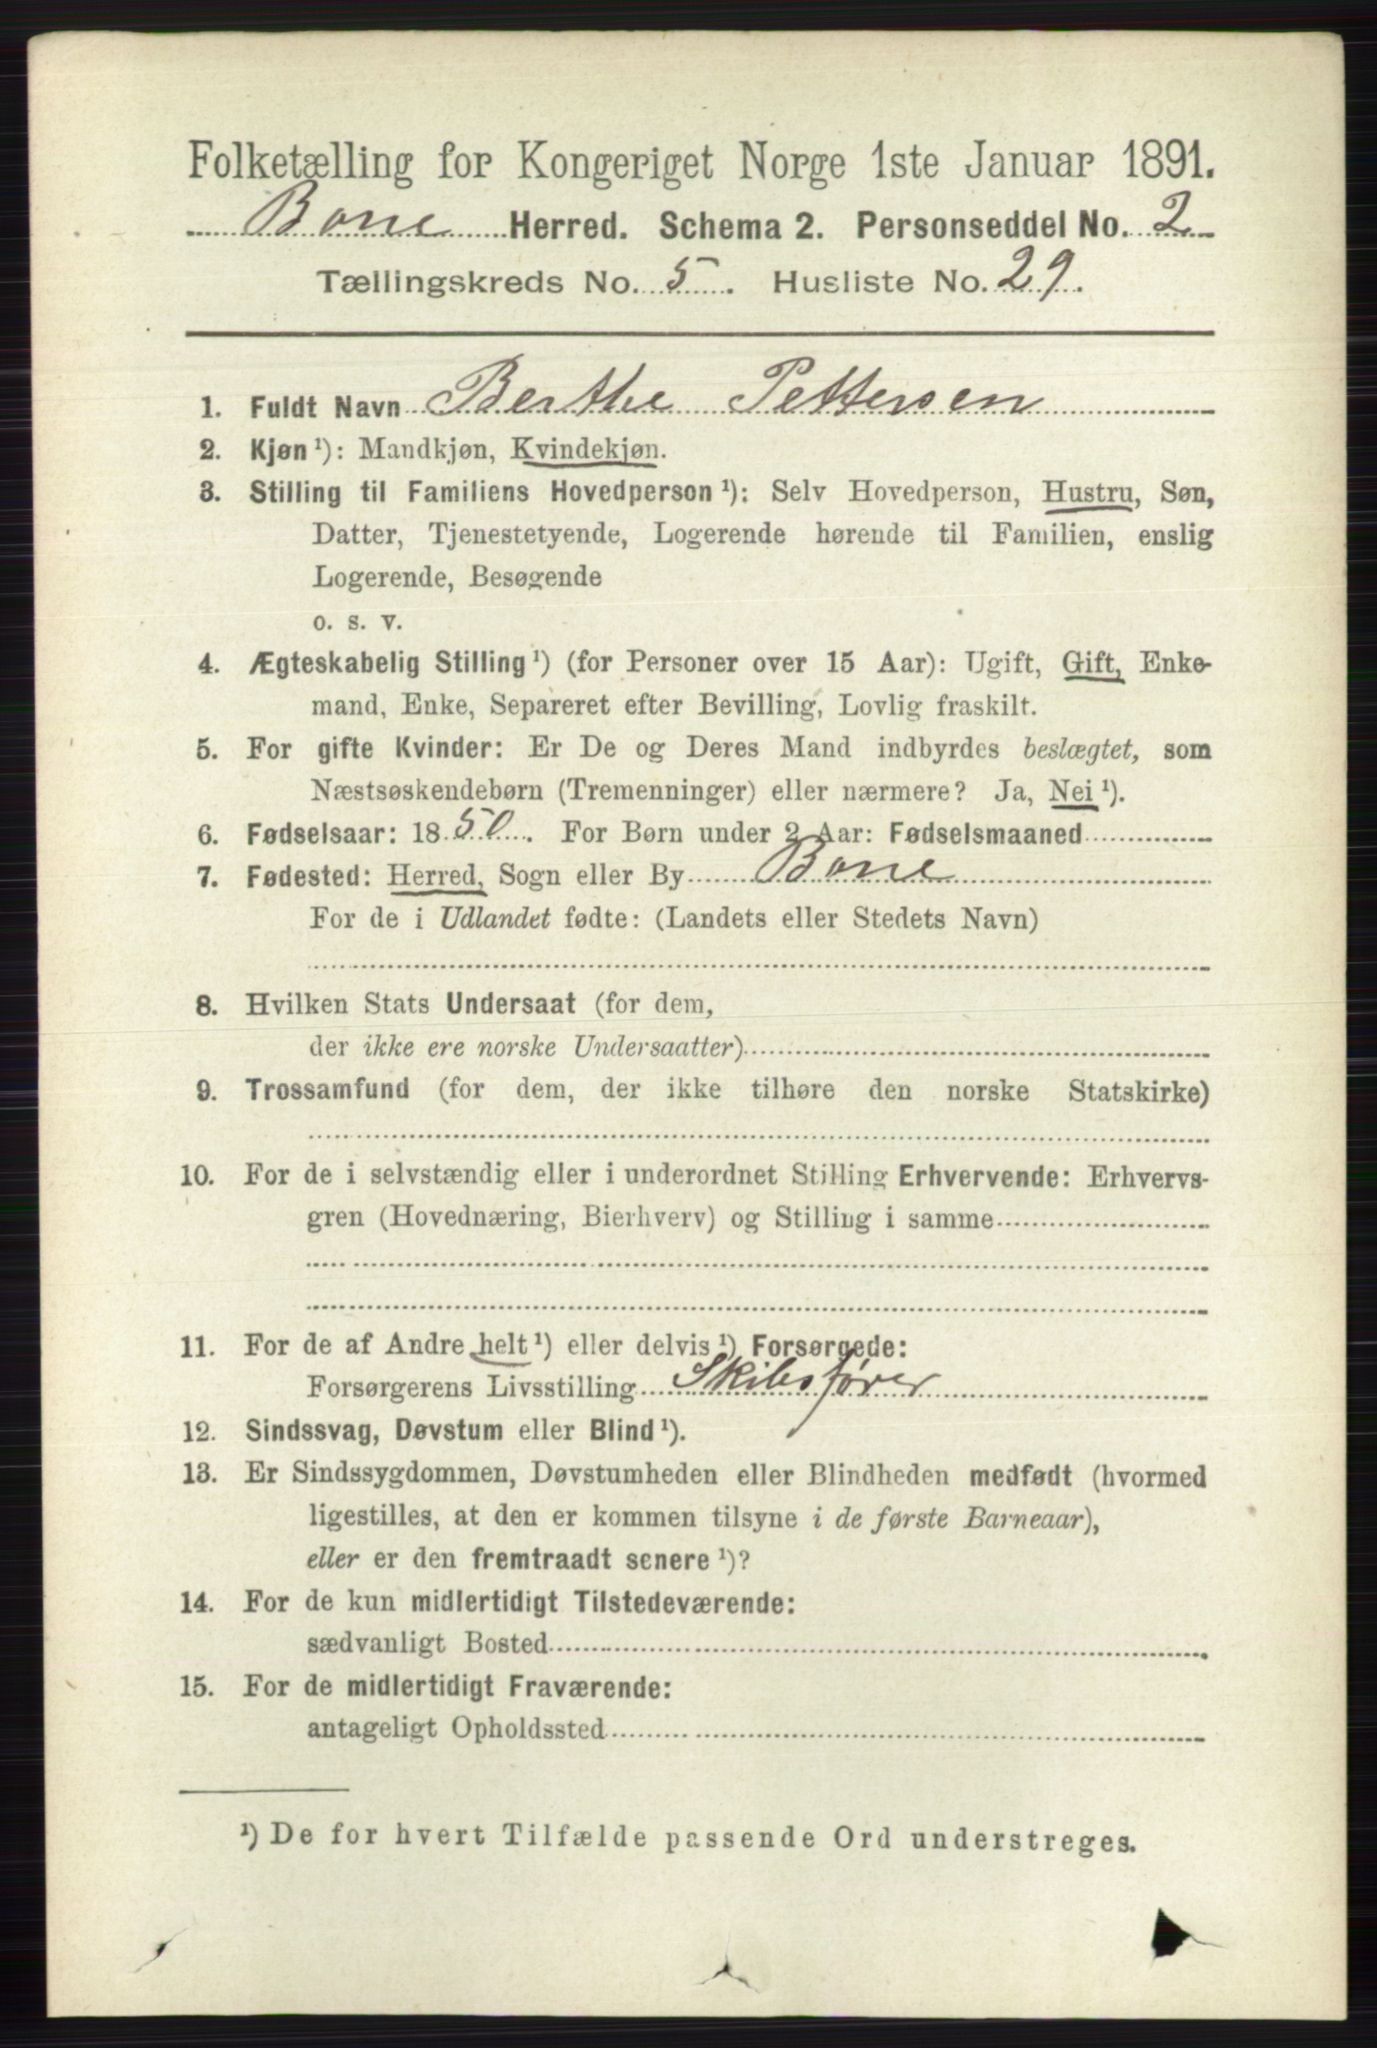 Folketælling for Kongeriget Norge 1ste Januar 1891.
Borre Herred. Schema 2. Personseddel No. 2
Tællingskreds No. 5. Husliste No. 29.
1. Fuldt Navn Berthe Pettersen
2. Kjøn ¹): Mandkjøn, Kvindekjøn.
3. Stilling til Familiens Hovedperson ¹): Selv Hovedperson, Hustru, Søn,
Datter, Tjenestetyende, Logerende hørende til Familien, enslig
Logerende, Besøgende
o. s. v.
4. Ægteskabelig Stilling ¹) (for Personer over 15 Aar): Ugift, Gift, Enke-
mand, Enke, Separeret efter Bevilling, Lovlig fraskilt.
5. For gifte Kvinder: Er De og Deres Mand indbyrdes beslægtet, som
Næstsøskendebørn (Tremenninger) eller nærmere? Ja, Nei ¹).
6. Fødselsaar: 1850. For Børn under 2 Aar: Fødselsmaaned
7. Fødested: Herred, Sogn eller By Borre
For de i Udlandet fødte: (Landets eller Stedets Navn)
8. Hvilken Stats Undersaat (for dem,
der ikke ere norske Undersaatter)
9. Trossamfund (for dem, der ikke tilhøre den norske Statskirke)
10. For de i selvstændig eller i underordnet Stilling Erhvervende: Erhvervs-
gren (Hovednæring, Bierhverv) og Stilling i samme
11. For de af Andre helt ¹) eller delvis ¹) Forsørgede:
Forsørgerens Livsstilling Skibsfører
12. Sindssvag, Døvstum eller Blind ¹).
13. Er Sindssygdommen, Døvstumheden eller Blindheden medfødt (hvormed
ligestilles, at den er kommen tilsyne i de første Barneaar),
eller er den fremtraadt senere ¹)?
14. For de kun midlertidigt Tilstedeværende:
sædvanligt Bosted
15. For de midlertidigt Fraværende:
antageligt Opholdssted
¹) De for hvert Tilfælde passende Ord understreges.